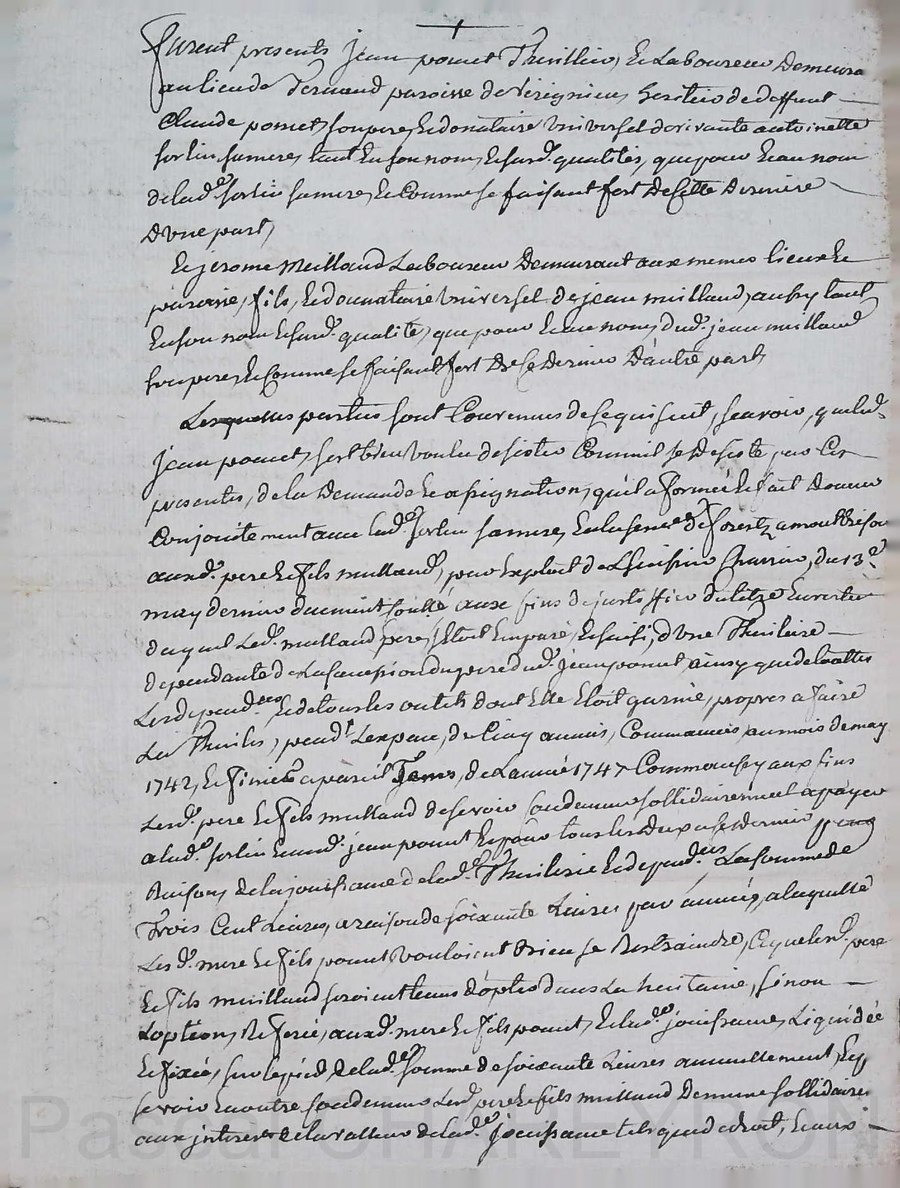 furent presents jean pomet Thuillier, et Laboureur Demeura
au lieu de Fernand paroisse de Vérignieu, heritier de deffunt
Claude pomet son pere, et donataire universel d'orivante antoinette
fortin sa mere, tant en son nom, et sur d. qualités, que pour et au nom
de lad.e fortin sa mere, et Comme se faisant fort De Cette Derniere
D'une part,
Et jerome Meilland Laboureur Demeurant aux memes lieux et
paroisse, fils, et donnataire universel de jean meilland, aussy tant
en son nom et sur d. qualité, que pour et au nom, dud. jean meilland
son pere, et Comme se faisant fort De Ce Dernier D'autre part,
Lesquelles parties sont Convenues de Ce qui suit, scavoir, que led.
jean pomet, s'est bien voulu desister Comm'il se Desiste, par Ces
presentes, de la Demande et assignation, qu'il a formée et fait Donner
Conjointement avec lad.e fortin sa mere, en la senec.ée de forest, a montbrison
auxd. pere et fils meilland, par Exploit de L'huissier Charrin, du 13.e
may dernier duement Contrôllé aux fins de justiffier du titre en vertu
duquel Led. meilland pere, s'étoit Emparé, et saisi, d'Une Thuilaire
dependante de La succession du pere dud. jean pomet, ainsy que de touttes
Les depend.ces et de tous les outils dont elle étoit garnie, propres a faire
La Thuiles, pend.t L'espace, de Cinq années, Commancées, au mois de may
1742, et finies a pareil Tems, de L'année 1747 Comm'aussy aux fins
Lesd. pere et fils meilland de se voir Condamner sollidairement a payer
a lad.e fortin et aud. jean pomet et pour tous les deux a ce dernier
Raisons de la jouissance de lad.e Thuilerie et depend.ces La somme de
Trois Cent Livres, a raison de soixante Livres par année, a laquelle
Lesd. mere et fils pomet vouloient bien se Restraindre, Ce que lesd. pere
et fils meilland seroient tenus d'opter dans La huitaine, sinon
L'option, Referée, auxd. mere et fils pomet, et lad.e jouissance, Liquidée
et fixée, sur le pied de lad.e somme de soixante Livres annuellement, et
se voir en outre Condamner Lesd. pere et fils meilland De meme sollidaire
aux interets de la valleur de lad.e jouissance tels que de droit, et aux
Pascal CHAREYRON